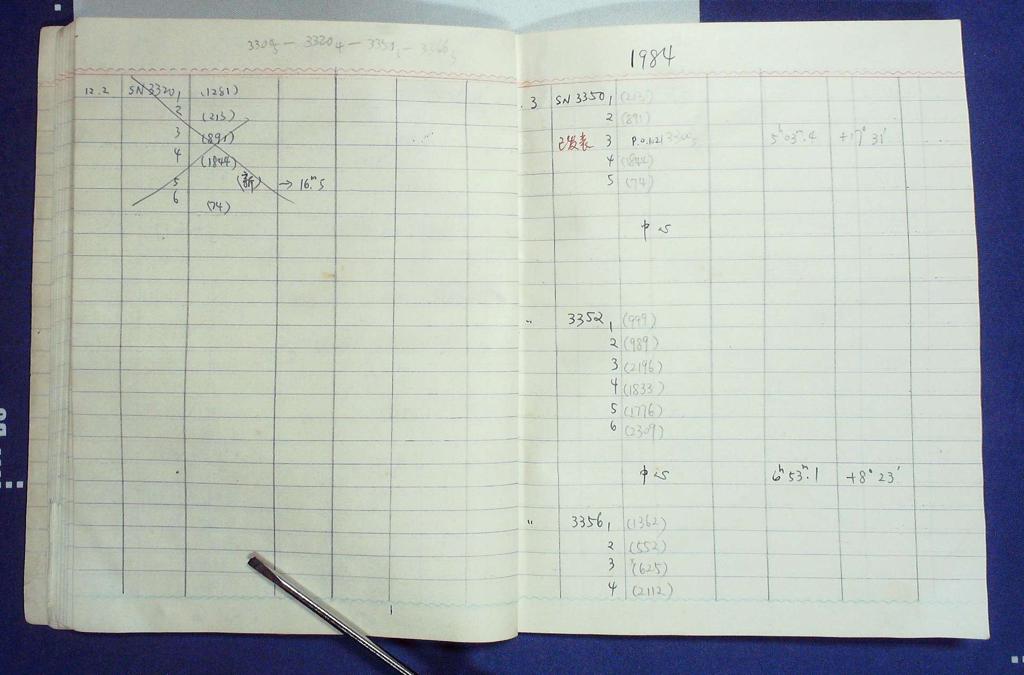 3309₅ — 3320₄ — 3350₃ — 3366₅
12.2 SN 3320₁ (1281)
2 (213)
3 (891)
4 (1844)
5 (新) → 16ᵐ.5
6 (74)
1
1984
3 SN 3350₁ (213)
2 (891)
已发表 3 P.0.1121 3309₅ 5ʰ 03ᵐ.4 +17° 31′
4 (1844)
5 (74)
中心
〃 3352₁ (999)
2 (989)
3 (2196)
4 (1833)
5 (1776)
6 (2309)
中心 6ʰ 53ᵐ.1 +8° 23′
〃 3356₁ (1362)
2 (552)
3 (625)
4 (2112)